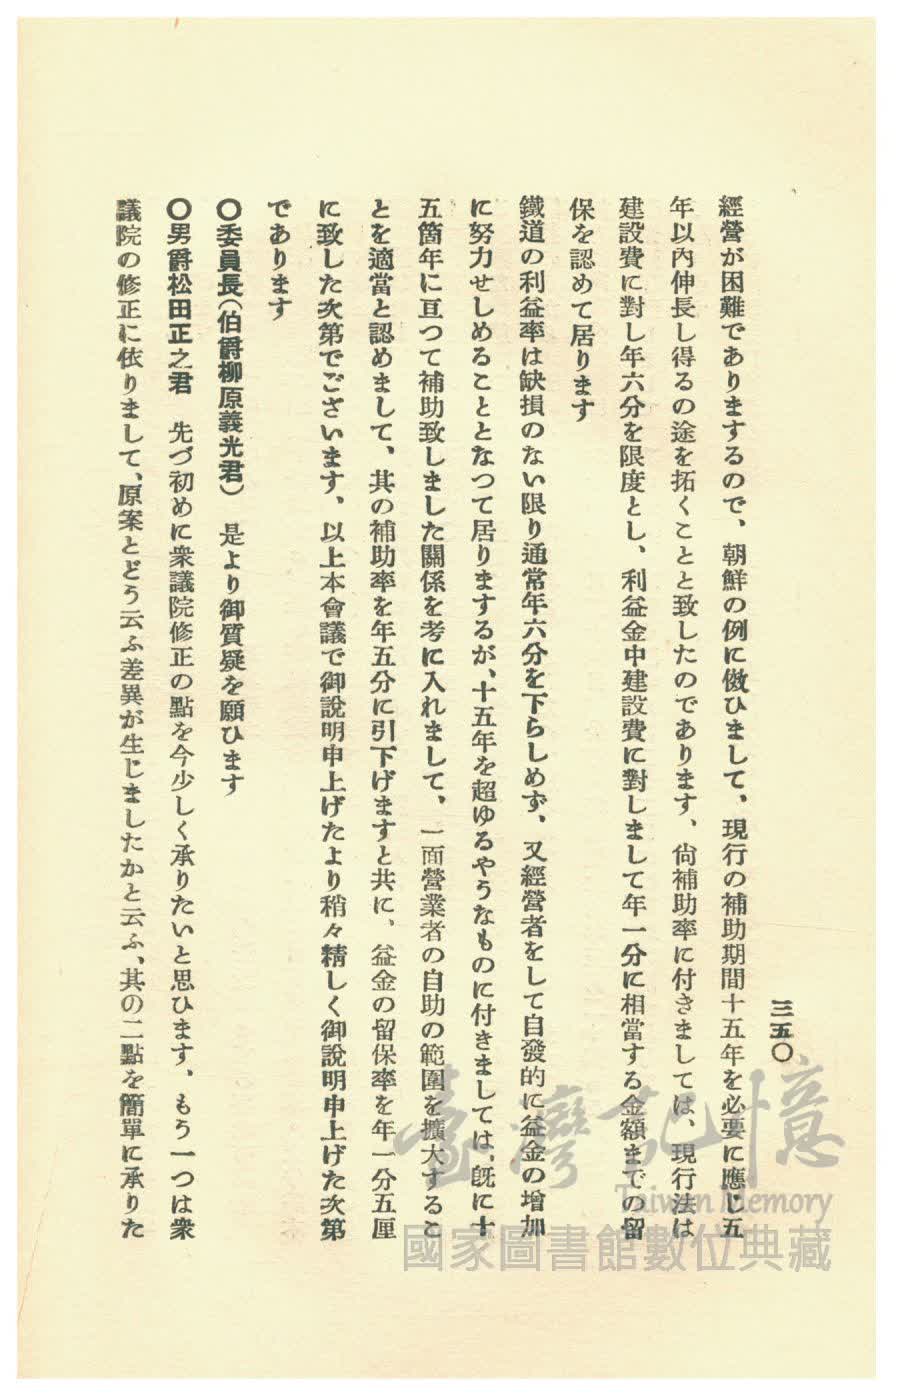 三五〇
經營が困難でありまするので、朝鮮の例に倣ひまして、現行の補助期間十五年を必要に應じ五
年以內伸長し得るの途を拓くことと致したのであります、尙補助率に付きましては、現行法は
建設費に對し年六分を限度とし、利益金中建設費に對しまして年一分に相當する金額までの留
保を認めて居ります
鐵道の利益率は缺損のない限り通常年六分を下らしめず、又經營者をして自發的に益金の增加
に努力せしめることとなつて居りまするが、十五年を超ゆるやうなものに付きましては、旣に十
五箇年に亙つて補助致しました關係を考に入れまして、一面營業者の自助の範圍を擴大するこ
とを適當と認めまして、其の補助率を年五分に引下げますと共に、益金の留保率を年一分五厘
に致した次第でございます、以上本會議で御說明申上げたより稍々精しく御說明申上げた次第
であります
〇委員長(伯爵柳原義光君) 是より御質疑を願ひます
〇男爵松田正之君 先づ初めに衆議院修正の點を今少しく承りたいと思ひます、もう一つは衆
議院の修正に依りまして、原案とどう云ふ差異が生じましたかと云ふ、其の二點を簡單に承りた
臺灣記憶
Taiwan Memory
國家圖書館數位典藏